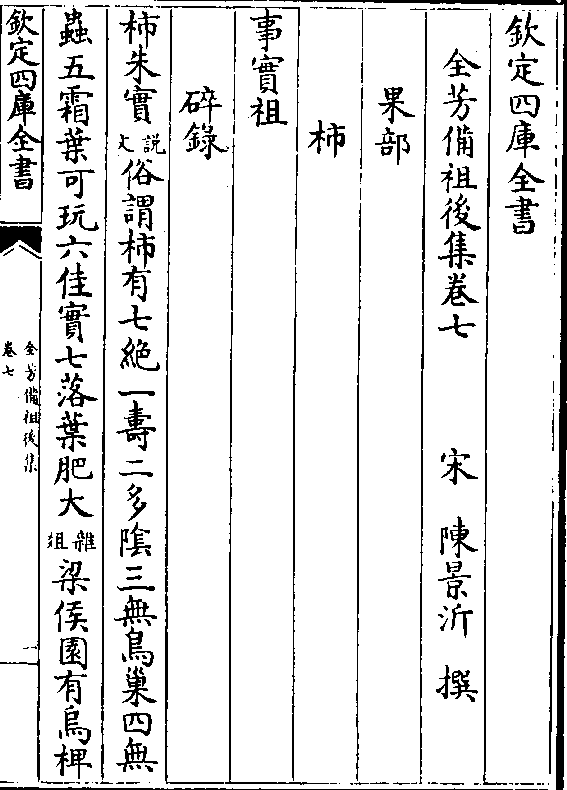 欽定四庫全書
全芳備祖後集卷七
宋 陳景沂 撰
果部
柿
事實祖
碎錄
柿朱實說文俗謂柿有七絶一壽二多隂三無鳥巢四無
蟲五霜葉可玩六佳實七落葉肥大雜俎梁侯園有烏椑
欽定四庫全書
全芳備祖後集
卷七
一